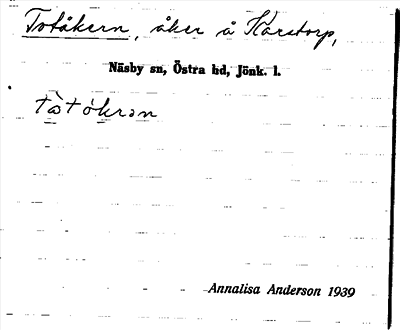 Totåkern, åker å Karstorp,
Näsby sn, Östra hd, Jönk. l.
tòtókrən
Annalisa Anderson 1939